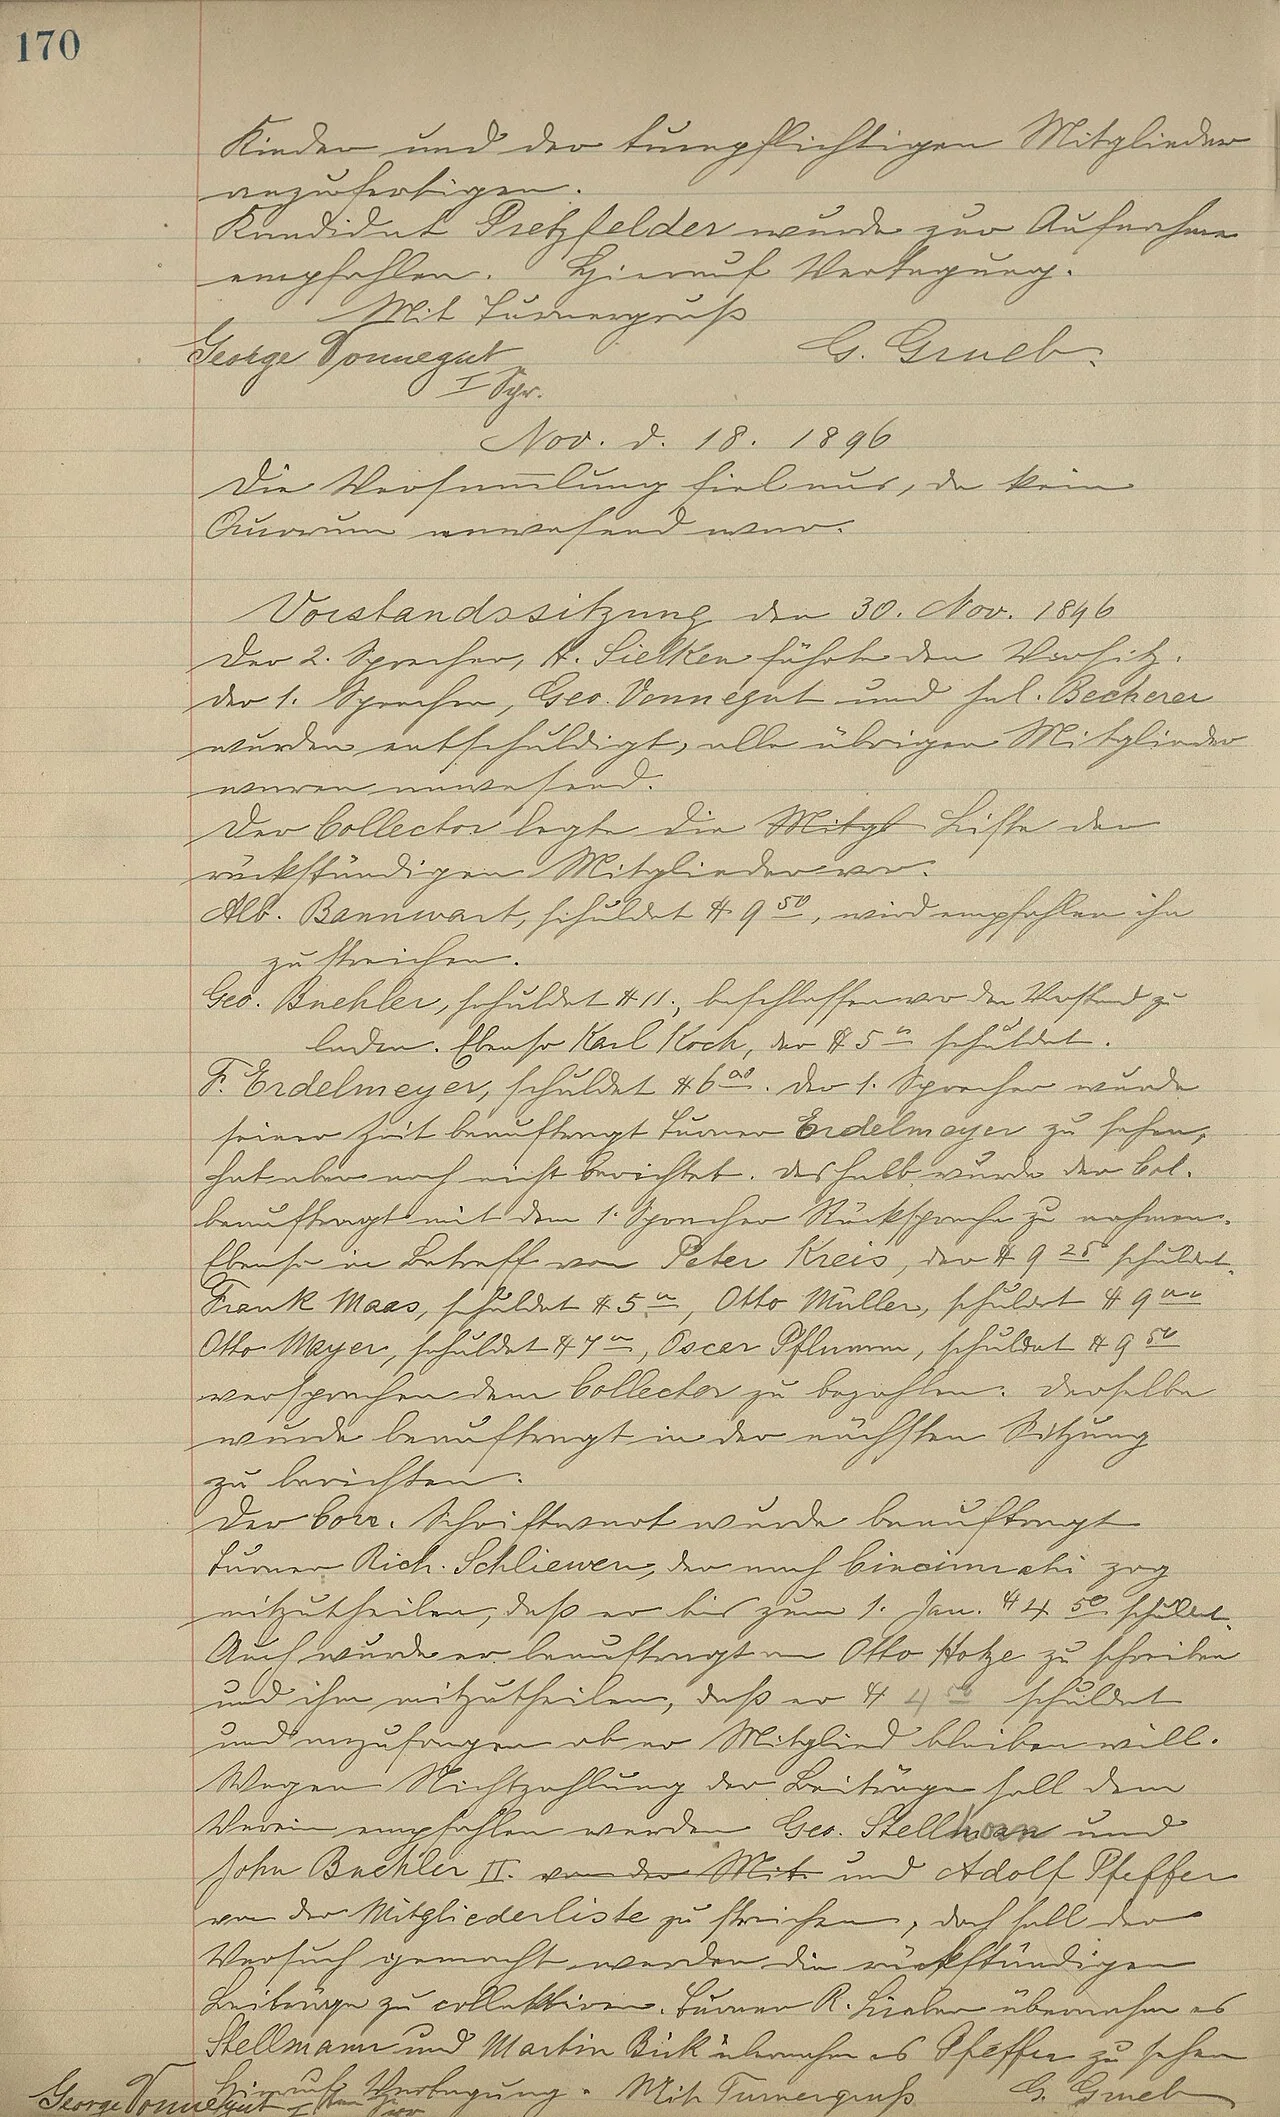 170
Kinder und der turnpflichtigen Mitglieder
anzufertigen.
Kandidat Pretzfelder wurde zur Aufnahme
empfohlen. Hierauf Vertagung.
Mit Turnergruß
George Vonnegut G. Grueb.
I Spr.
Nov. d. 18. 1896
Die Versammlung fiel aus, da kein
Quorum anwesend war.
Vorstandssitzung den 30. Nov. 1896
Der 2. Sprecher, H. Sielken führte den Vorsitz.
Der 1. Sprecher, Geo. Vonnegut und Becherer
wurden entschuldigt, alle übrigen Mitglieder
waren anwesend.
Der Collector legte die Mitgl Liste der
rückständigen Mitglieder vor.
Alb. Bannwart, schuldet $ 9 50, wird empfohlen ihn
zu streichen.
Geo. Buehler, schuldet $ 11., beschlossen vor den Vorstand zu
laden. Ebenso Karl Koch, der $ 5 00 schuldet.
F. Erdelmeyer, schuldet $ 6 00. Der 1. Sprecher wurde
seiner Zeit beauftragt Turner Erdelmeyer zu sehen,
hat aber noch nicht berichtet. Deshalb wurde der Col.
beauftragt mit dem 1. Sprecher Rücksprache zu nehmen.
Ebenso in Betreff von Peter Kreis, der $ 9 25 schuldet.
Frank Maas, schuldet $ 5 00, Otto Müller, schuldet $ 9 00
Otto Mayer, schuldet $ 7 00, Oscar Pflumm, schuldet $ 9 50
versprachen dem Collector zu bezahlen. Derselbe
wurde beauftragt in der nächsten Sitzung
zu berichten.
Der Corr. Schriftwart wurde beauftragt
Turner Rich. Schliewen, der nach Cincinnati zog
mitzutheilen, daß er bis zum 1. Jan. $ 4 50 schuldet.
Auch wurde er beauftragt an Otto Hotze zu schreiben
und ihm mitzutheilen, daß er $ 4 50 schuldet
und anzufragen ob er Mitglied bleiben will.
Wegen Nichtzahlung der Beiträge soll dem
Verein empfohlen werden Geo. Stellhorn und
John Buehler II. von der Mit. und Adolf Pfeffer
von der Mitgliederliste zu streichen, doch soll der
Versuch gemacht werden die rückständigen
Beiträge zu collektiren. Turner R. Lieber übernahm es
Stellmann und Martin Bick übernahm es Pfeffer zu sehen
Hierauf Vertagung. Mit Turnergruß G. Grueb
George Vonnegut I